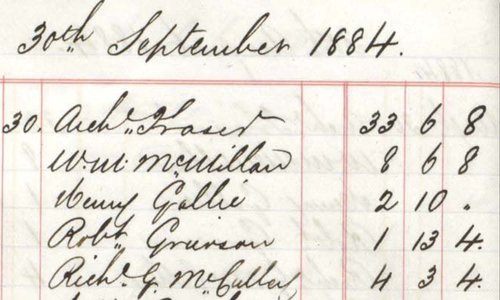 30th September 1884.
30. Archd. Fraser 33 6 8
Wm. McMillan 8 6 8
Henry Gallie 2 10 "
Robt. Grierson 1 13 4.
Richd. G. McCulley 4 3 4